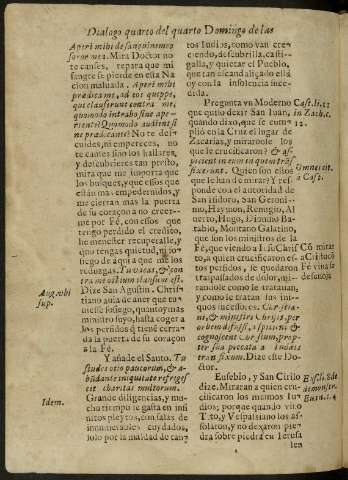 Dialogo quarto del quarto Domingo de las
Aperi mihi de sanguine meo
soror mea. Mira Doctor no
te canses, repara que mi
sangre se pierde en esta Na
cion malvada, Aperi mihi
prædica me, ad hoc quippe,
qui clauserunt contra me,
quomodo intrabo sine ape-
riente? Quomodo audient si
ne prædicante? No te des-
cuides, ni empereces, no
te canses sino los hallares,
y descubrieres tan perito,
mira que me importa que
los busques, y que essos que
están mas empedernidos, y
me cierran mas la puerta
de su coraçon a no creer-
me por Fè, con essos que
tengo perdido el credito,
he menester recuperalle, y
quo tengas quietud, ni so-
siego de aqui a que me los
reduzgas. Tu vacas, & con-
tra me ostium clausum est.
Dize San Agustin. Chris-
tiano auia de auer que tu-
uiesse sosiego, quanto y mas
ministro suyo, hasta coger a
los perfidos q tienê cerra-
da la puerta de su coraçon
a la Fè.
Aug. vbi
sup.
Y añade el Santo. Tu
studes otio paucorum, & a-
bũdante iniquitate refriges-
cit charitas multorum.
Grande diligencias, y mu-
cho tiempo se gasta en infi-
nitos pleytos, con salas de
innumerables cuydados,
solo por la maldad de tan-
Idem.
tos Iudios, como van cre-
ciendo, descubrilla, casti-
galla, y quietar el Pueblo,
que tan escandaliçado està
cy con la insolencia suce-
dida.
Pregunta vn Moderno
que quiso dezir San Iuan,
quando dixo, que se cum-
plio en la Cruz el lugar de
Zacarias, y mirarole los
que le crucificaron? & as-
picient in eum in quem trãs-
fixerunt. Quien son essos
que le han de mirar? Y res-
ponde con el autoridad de
San Isidoro, San Geroni-
mo, Haymon, Remigio, Al
uerto, Hugo, Dionisio Ba-
tabio, Montano Galatino,
que son los ministros de la
Fè, que viendo a I. Sa Clari-
to, a quien crucificaron es-
tos perfidos, se quedaron
traspassados de dolor, mi-
randole como le trataron,
y como le tratan sus ini-
quos sucessores. Christia-
ni, & ministri Christi, per
orbem diffusi, aspiciẽt, &
cognoscent Christum, prop-
ter sua peccata a Iudæis
transfixum. Dize este Do-
ctor.
Cast. li. 11
in Zach. c.
12.
Eusebio, y San Cirilo
dize. Miraran a quien cru-
cificaron los mesmos Iu-
dios; porque quando vino
Tito, y Vespasiano los as-
solaron, y no dexaron pie-
dra sobre piedra en Ierusa
len